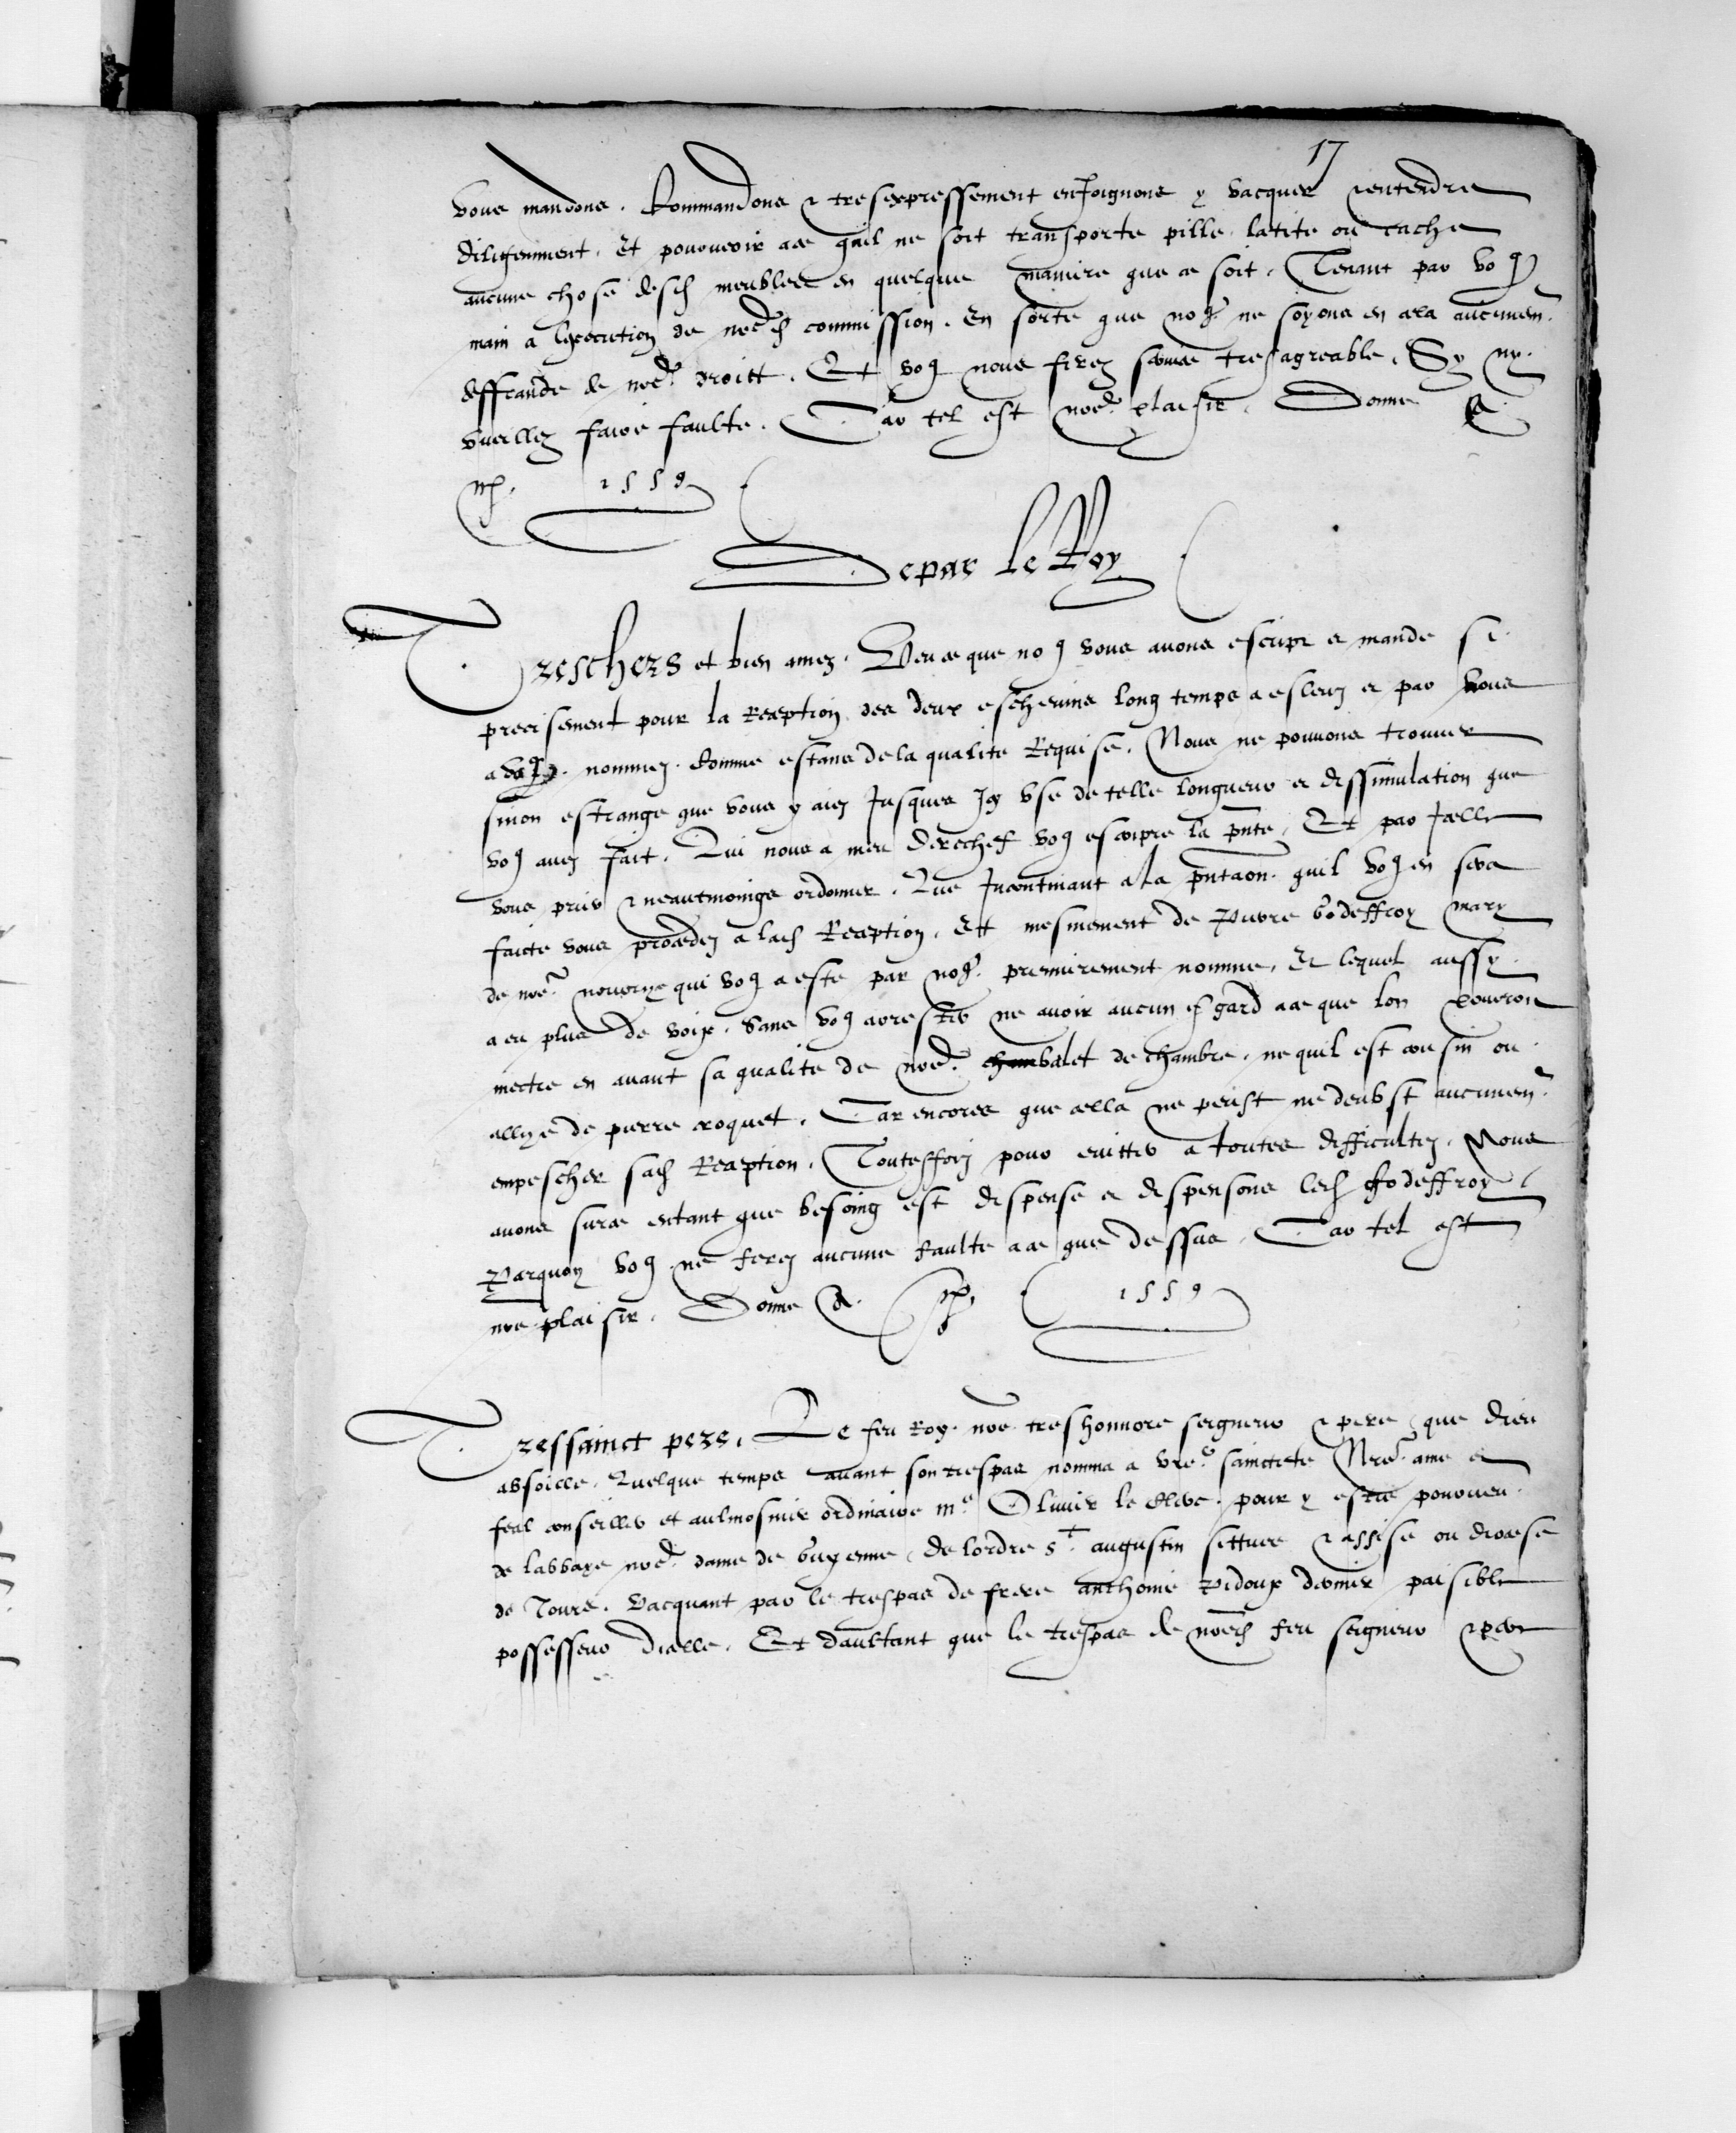 17
vous mandons, Commandons & tresexpressement enJoignons y vacquer & entendre
diligemment. Et pourveoir a ce quil ne soit transporte pille latite ou cache
aucune chose desd meubles en quelque maniere que ce soit. Tenant par vos
main a lexecution de nred commission. En sorte que nos ne soyons en cela aucunemt
deffraude de nred droict. Et vos nous ferez service tresagreable. Sy ny
vueillez faire faulte. Car tel est nre plaisir. Donne &
1559
De par le Roy
Treschers et bien amez. Veu ce que nos vous avons escript et mande si
precisement pour la Reception des deux eschevins long temps a esleuz et par vous
nommez. Comme estans de la qualite Requise. Nous ne pouvons trouver
sinon estrange que vous y aiez Jusques Icy use de telle longueur et dissimulation que
vos avez fait. Qui nous a meu derechef vos escripre la pnte, Et par Icelle
vous prier & neantmoings ordonner. Que Incontinant a la pntaon quil vos en sera
faicte vous procedez a lad Reception. Et mesmement de Pierre Godeffroy mary
de nre nourrye qui vos a este par nos premierement nomme, Et lequel aussy
a eu plus de voix. Sans vos arrester ne avoir aucun esgard a ce que lon pourroit
mectre en avant sa qualite de nre valet de chambre, ne quil est cousin ou
allye de pierre croquet. Car encores que cella ne peust ne deubst aucunemt
empescher sad Reception. Touteffois pour eviter a toutes difficultez. Nous
avons sur ce entant que besoing est dispense et dispensons led Godeffroy
Parquoy vos ne ferez aucune faulte a ce que dessus. Car tel est
nre plaisir. Donne & 1559
Tressainct pere. Le feu Roy nre treshonnore seigneur & pere que dieu
absoille. Quelque temps avant son trespas nomma a vre sainctete Nre ame et
feal conseiller et aulmosnier ordinaire me Olivier le clerc pour y estre pourveu
de labbaye nre dame de Guyenne, de lordre st augustin scituee & assise ou diocese
de Tours. Vacquant par le trespas de frere anthoine Pidoux dernier paisible
possesseur dicelle. Et daultant que le trespas de nred feu seigneur & pere